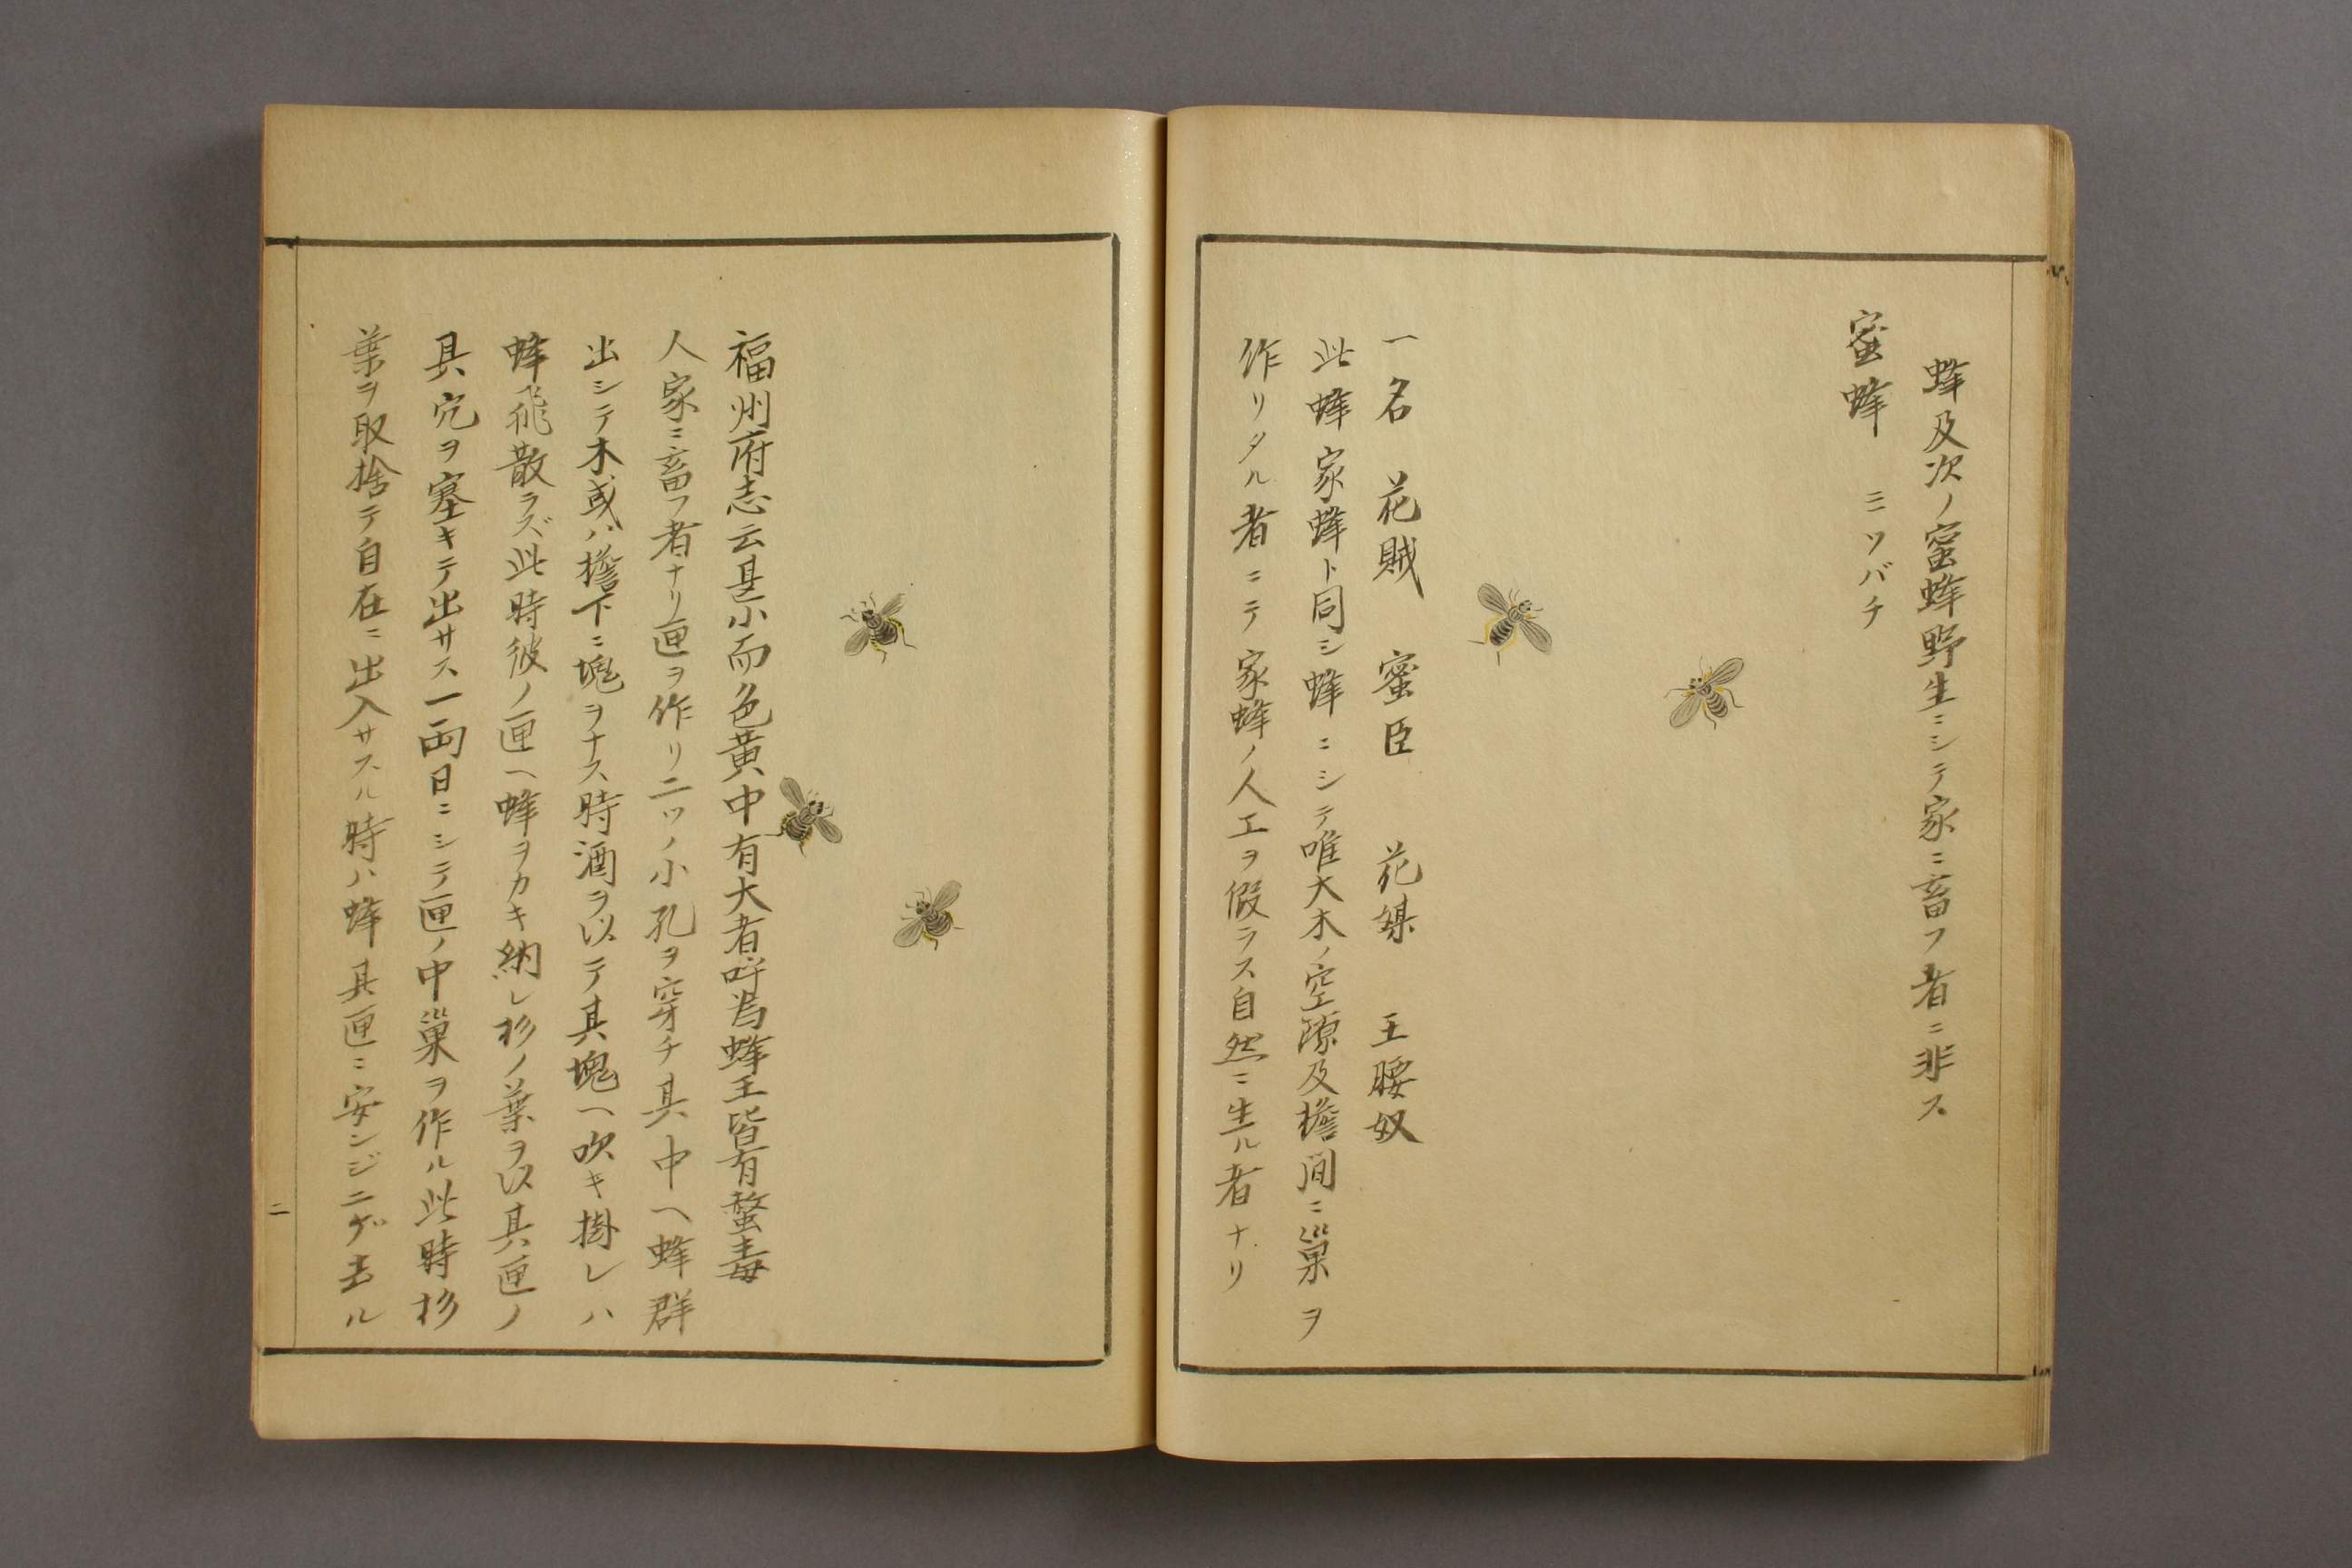 蜂及次ノ蜜蜂野生ニシテ家ニ畜フ者ニ非ス
蜜蜂 ミツバチ
一名 花賊 蜜臣 花媒 王腰奴
此蜂家蜂ト同シ蜂ニシテ唯大木ノ空隙及檐間ニ巣ヲ
作リタル者ニテ家蜂ノ人工ヲ假ラス自然ニ生ル者ナリ
福州府志云甚小而色黄中有大者呼為蜂王皆有螫毒
人家ニ畜フ者ナリ匣ヲ作リ二ツノ小孔ヲ穿チ其中ヘ蜂群
出シテ木或ハ檐下ニ塊ヲナス時酒ヲ以テ其塊ヘ吹キ掛レハ
蜂飛散ラズ此時彼ノ匣ヘ蜂ヲカキ納レ杉ノ葉ヲ以其匣ノ
具穴ヲ塞キテ出サス一両日ニシテ匣ノ中巣ヲ作ル此時杉
葉ヲ取捨テ自在ニ出入サスル時ハ蜂其匣ニ安ンジニゲ去ル
二